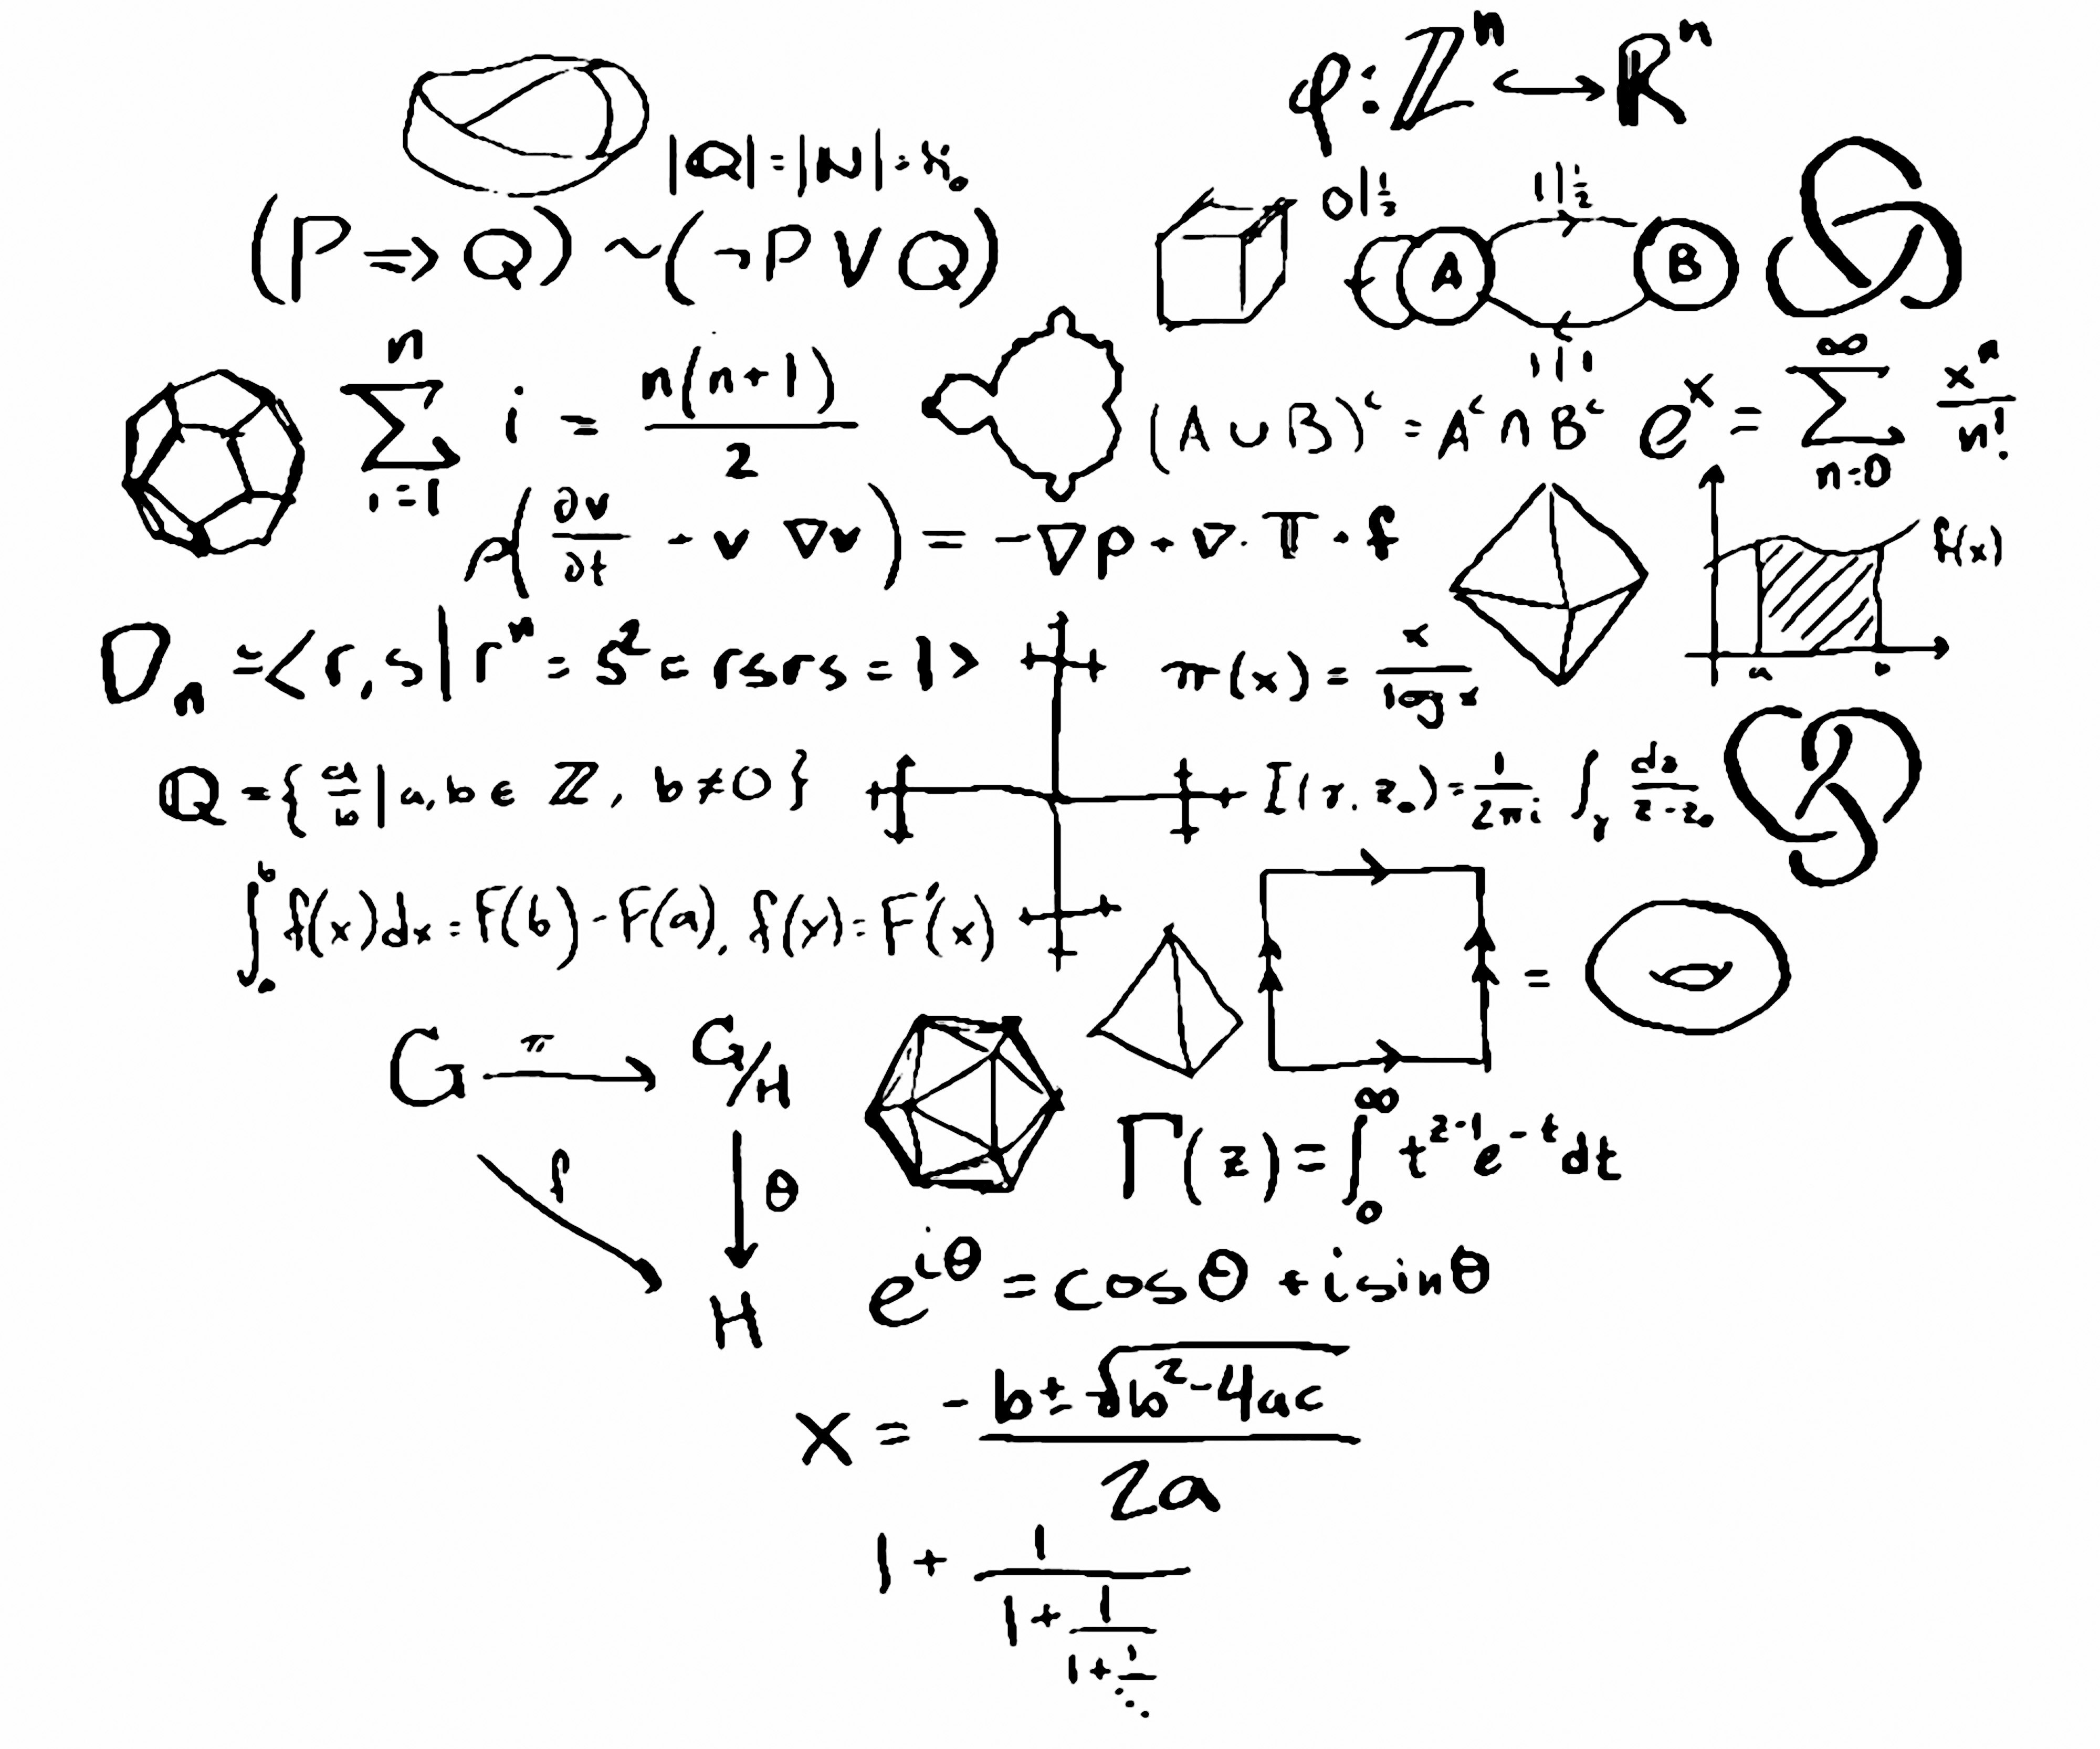 φ: ℤⁿ ↪ ℝⁿ
|ℚ| = |ℕ| = ℵ₀
(P ⇒ Q) ~ (¬P ∨ Q)
0|½
1|½
A
B
1|1
∑ⁿᵢ₌₁ i = n(n+1)/2
(A ∪ B)ᶜ = Aᶜ ∩ Bᶜ
eˣ = ∑^∞ₙ₌₀ xⁿ/n!
(∂v/∂t + v ∇v) = -∇p + ∇·𝕋 + f
f(x)
a b
Dₙ = <r, s | rⁿ = s² = rsrs = 1>
π(x) = x/log x
ℚ = { a/b | a, b ∈ ℤ, b ≠ 0 }
I(γ, z₀) = 1/2πi ∫γ dz/z-z₀
∫ᵇₐ f(x)dx = F(b) - F(a), f(x) = F'(x)
=
G π→ G/H
f θ
H
Γ(z) = ∫₀^∞ t^(z-1) e^(-t) dt
e^(iθ) = cosθ + i sinθ
x = -b ± √b² - 4ac / 2a
1 + 1/1 + 1/1 + 1/⋱